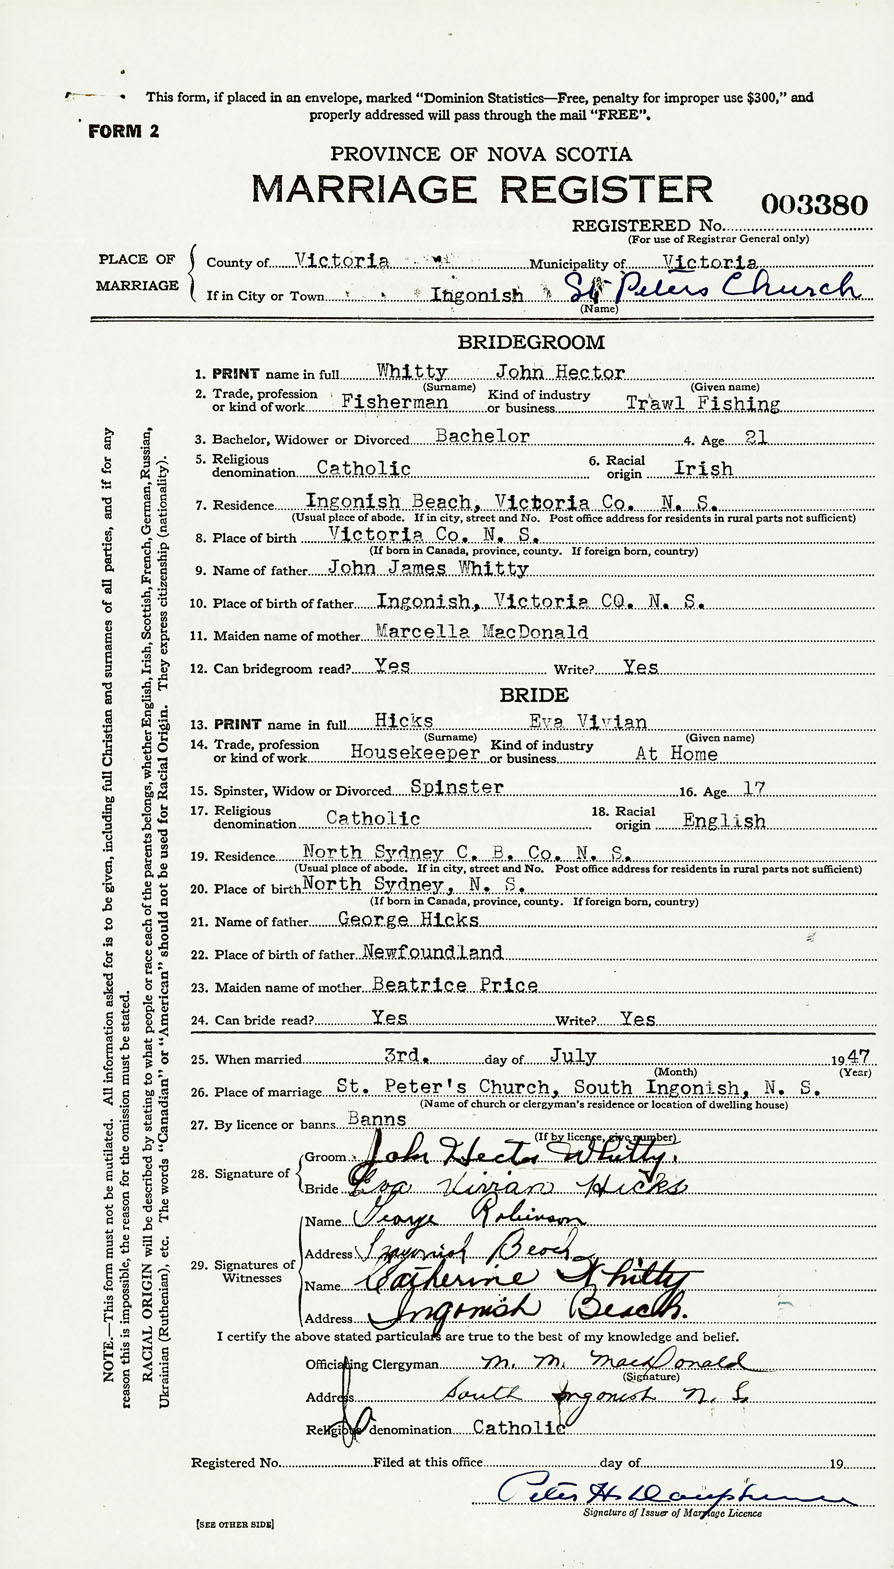 This form, if placed in an envelope, marked “Dominion Statistics—Free, penalty for improper use $300,” and
properly addressed will pass through the mail “FREE”.
FORM 2
PROVINCE OF NOVA SCOTIA
MARRIAGE REGISTER
003380
REGISTERED No.
(For use of Registrar General only)
PLACE OF MARRIAGE
County of Victoria Municipality of Victoria
If in City or Town Ingonish St Peters Church
(Name)
BRIDEGROOM
1. PRINT name in full Whitty John Hector
(Surname) (Given name)
2. Trade, profession or kind of work Fisherman Kind of industry or business Trawl Fishing
3. Bachelor, Widower or Divorced Bachelor 4. Age 21
5. Religious denomination Catholic 6. Racial origin Irish
7. Residence Ingonish Beach, Victoria Co. N. S.
(Usual place of abode. If in city, street and No. Post office address for residents in rural parts not sufficient)
8. Place of birth Victoria Co. N. S.
(If born in Canada, province, county. If foreign born, country)
9. Name of father John James Whitty
10. Place of birth of father Ingonish, Victoria CO. N. S.
11. Maiden name of mother Marcella MacDonald
12. Can bridegroom read? Yes Write? Yes
BRIDE
13. PRINT name in full Hicks Eva Vivian
(Surname) (Given name)
14. Trade, profession or kind of work Housekeeper Kind of industry or business At Home
15. Spinster, Widow or Divorced Spinster 16. Age 17
17. Religious denomination Catholic 18. Racial origin English
19. Residence North Sydney C. B. Co. N. S.
(Usual place of abode. If in city, street and No. Post office address for residents in rural parts not sufficient)
20. Place of birth North Sydney, N. S.
(If born in Canada, province, county. If foreign born, country)
21. Name of father George Hicks
22. Place of birth of father Newfoundland
23. Maiden name of mother Beatrice Price
24. Can bride read? Yes Write? Yes
25. When married 3rd. day of July 1947
(Month) (Year)
26. Place of marriage St. Peter's Church, South Ingonish, N. S.
(Name of church or clergyman's residence or location of dwelling house)
27. By licence or banns Banns
(If by licence, give number)
28. Signature of
Groom John Hector Whitty.
Bride Eva Vivian Hicks
29. Signatures of Witnesses
Name George Robinson
Address Ingonish Beach
Name Catherine Whitty
Address Ingonish Beach.
I certify the above stated particulars are true to the best of my knowledge and belief.
Officiating Clergyman M. M. MacDonald
(Signature)
Address South Ingonish N. S.
Religious denomination Catholic
Registered No. Filed at this office day of 19
Peter H
Signature of Issuer of Marriage Licence
[SEE OTHER SIDE]
NOTE.—This form must not be mutilated. All information asked for is to be given, including full Christian and surnames of all parties, and if for any
reason this is impossible, the reason for the omission must be stated.
RACIAL ORIGIN will be described by stating to what people or race each of the parents belongs, whether English, Irish, Scottish, French, German, Russian,
Ukrainian (Ruthenian), etc. The words “Canadian” or “American” should not be used for Racial Origin. They express citizenship (nationality).